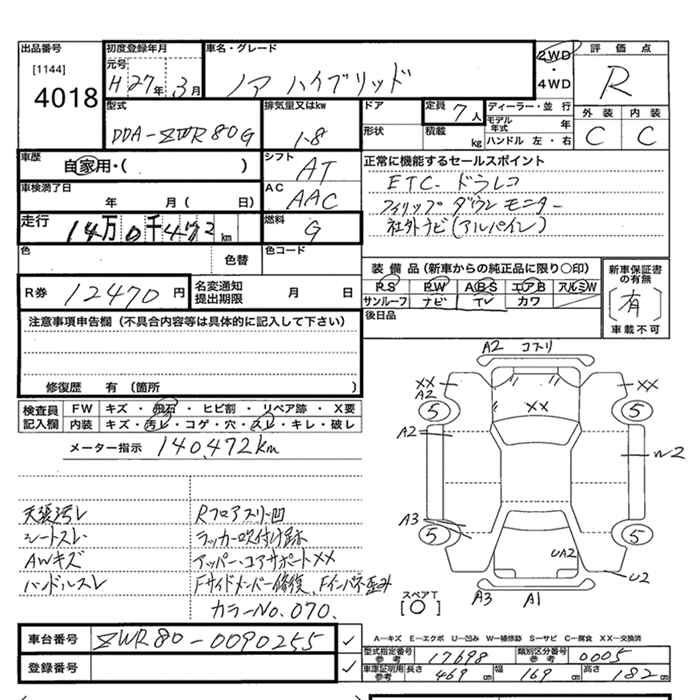 出品番号
[1144]
4018
初度登録年月
元号
H 27年 3月
車名・グレード
ノア ハイブリッド
2WD
・
4WD
評価点
R
外装 内装
C C
型式
DDA-ZWR80G
排気量又はkw
1.8
ドア
形状
定員 7人
積載 kg
ディーラー・並行
モデル年式 年
ハンドル 左・右
車歴
自家用・( )
シフト
AT
車検満了日
年 月( 日)
AC
AAC
走行
14万0千472km
燃料
G
色
色替
色コード
正常に機能するセールスポイント
ETC. ドラレコ
フィリップダウンモニター
社外ナビ(アルパイン)
装備品(新車からの純正品に限り○印)
P.S P.W A.B.S エアB アルミW
サンルーフ ナビ TV カワ
後日品
新車保証書の有無
[有]
車載不可
R券 12470円
名変通知
提出期限
月 日
注意事項申告欄(不具合内容等は具体的に記入して下さい)
修復歴 有(箇所 )
検査員
記入欄
FW キズ・飛石・ヒビ割・リペア跡・X要
内装 キズ・汚レ・コゲ・穴・スレ・キレ・破レ
メーター指示 140,472km
天張汚レ
シートスレ
AWキズ
ハンドルスレ
Rフロアスリ凹
ラッカー吹付け跡
アッパー・コアサポートXX
Fサイドメンバー修復、Fインパネ歪み
カラーNo.070.
A2 コスリ
XX
A2
XX
XX
5
5
A2
W2
A3
5
5
UA2
U2
A3 A1
スペアT
[○]
車台番号 ZWR80-0090255
登録番号
A―キズ E―エクボ U―凹み W―補修跡 S―サビ C―腐食 XX―交換済
型式指定番号
参考
17698
類別区分番号
参考
0005
車庫証明用
参考
長さ 469cm 幅 169cm 高さ 182cm